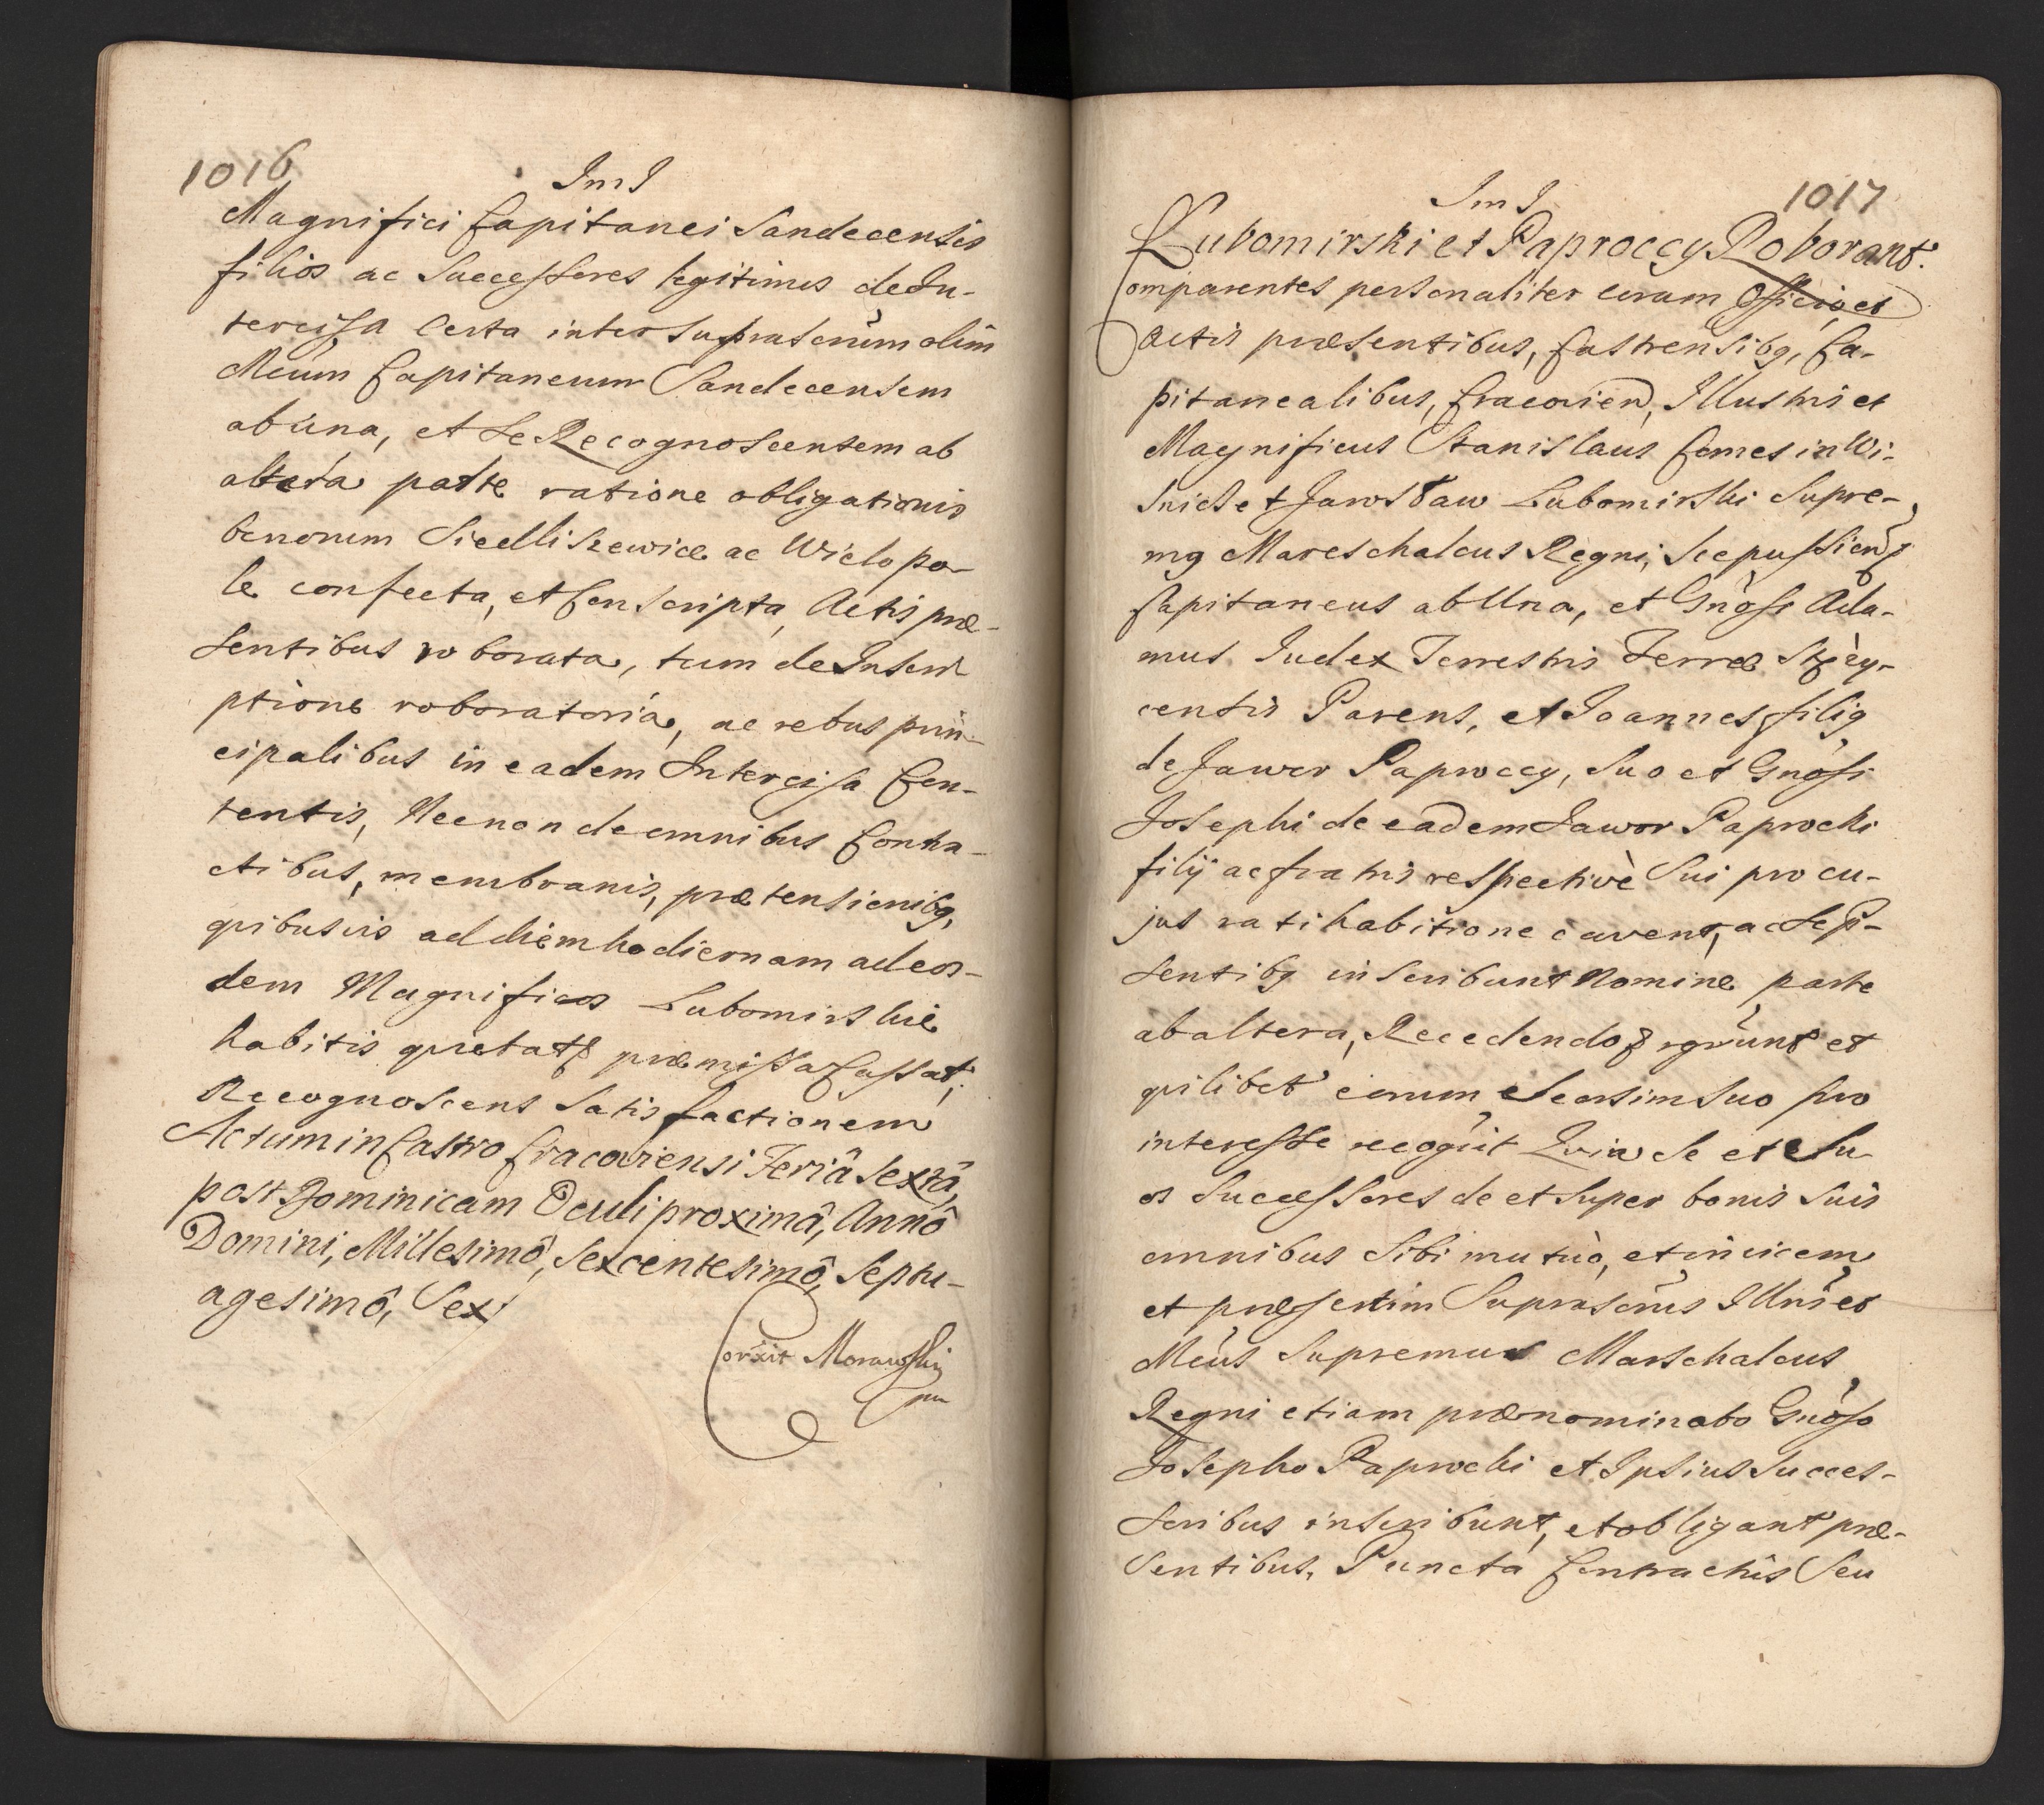 1016
ImI
Magnifici Capitanei Sandecensis
filios ac Successores legitimos de In-
tercisa Certa inter suprascrium olim
Mcum Capitaneum Sandecensem
ab una, et se Recognoscentem ab
altera parte ratione obligationis
bonorum Siedliszewice ac Wielopo-
le confecta, et Conscripta, Actis præ-
sentibus roborata, tum de Inscri
ptione roboratoria, ac rebus prin-
cipalibus in eadem Intercisa Con-
tentis, Necnon de omnibus Contra-
ctibus, membranis, prætensionibq,
quibusvis ad diem hodiernam ad eos-
dem Magnificos Lubomirskie
habitis quietat præmissa Cassat,
Recognoscens Satisfactionem
Actum in Castro Cracoviensi Feriâ Sextâ,
post Dominicam Oculi proximâ, Annô
Domini, Millesimô, Sexcentesimô, Septu-
agesimô, Sex:
Corxit Morawski
mp
ImI
1017
Lubomirski et Paproccy Roborant.
Comparentes personaliter coram Officio, et
Actis præsentibus, Castrensibq, Ca-
pitanealibus, Cracovien, Illustris et
Magnificus Stanislaus Comes in Wi-
snicz et Jarosław Lubomirski Supre-
mq Mareschalcus Regni, Scepussien
Capitaneus ab Una, et Gnosi Ada-
mus Judex Terrestris Terræ Stęzy-
censis Parens, et Joannes filiq
de Jawor Paproccy, Suo et Gnosi
Josephi de eadem Jawor Paprocki
filij ac fratris respectivè Sui pro cu-
jus ratihabitione cavent, ac se p-
sentibq inscribunt Nomine parte
ab altera, Recedendo rgrunt et
quilibet eorum Seorsim suo pro
interesse recogit Quia Se et Su
os Successores de et super bonis Suis
omnibus Sibi mutuò, et invicem
et præsertim Suprascrius Illris et
Mcus Supremus Marschalcus
Regni etiam prænominato Gnoso
Josepho Paprocki et Ipsius Succes-
soribus inscribunt, et obligant præ-
sentibus, Puncta Contractûs Seu